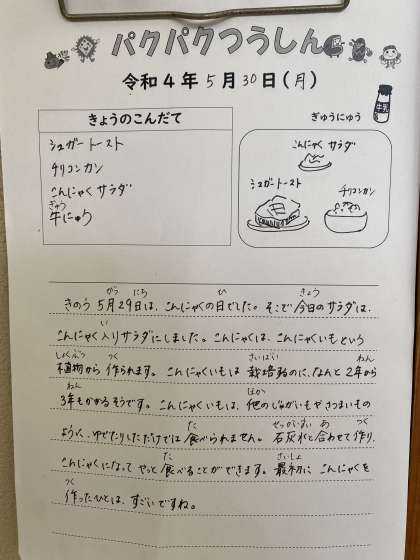 パクパクつうしん
令和4年5月30日(月)
きょうのこんだて
シュガートースト
チリコンカン
こんにゃくサラダ
ぎゅう
牛にゅう
ぎゅうにゅう
牛乳
こんにゃくサラダ
シュガートースト
チリコンカン
がつ にち ひ きょう
きのう5月29日は、こんにゃくの日でした。そこで今日のサラダは、
い
こんにゃく入りサラダにしました。こんにゃくは、こんにゃくいもという
しょくぶつ つく さいばい ねん
植物から作られます。こんにゃくいもは栽培するのに、なんと2年から
ねん ほか
3年もかかるそうです。こんにゃくいもは、他のじゃがいもやさつまいもの
た せっかいすい あ つく
ように、ゆでたりしただけでは食べられません。石灰水と合わせて作り、
た さいしょ
こんにゃくになってやっと食べることができます。最初にこんにゃくを
つく
作ったひとは、すごいですね。